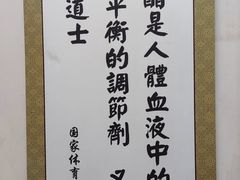 晶是人體血液中的
平衡的調節劑
道士
国家体育